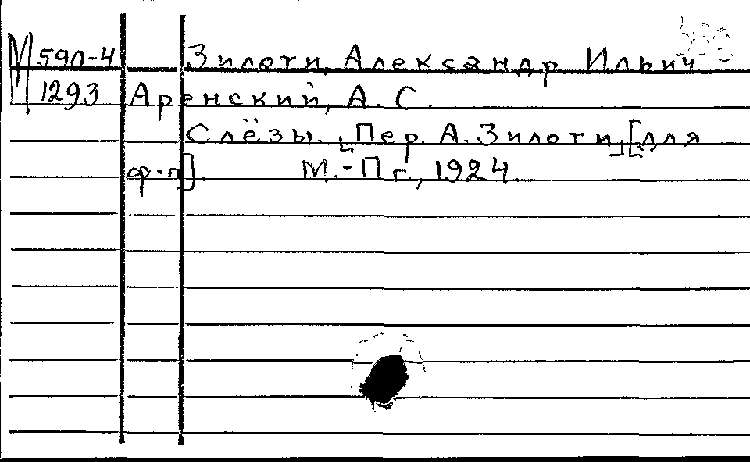 М 59п-4 Зилоти, Александр Ильич
1293 Аренский, А. С.
Слёзы. [Пер. А. Зилоти] [для
ф-п]. М.-Пг., 1924